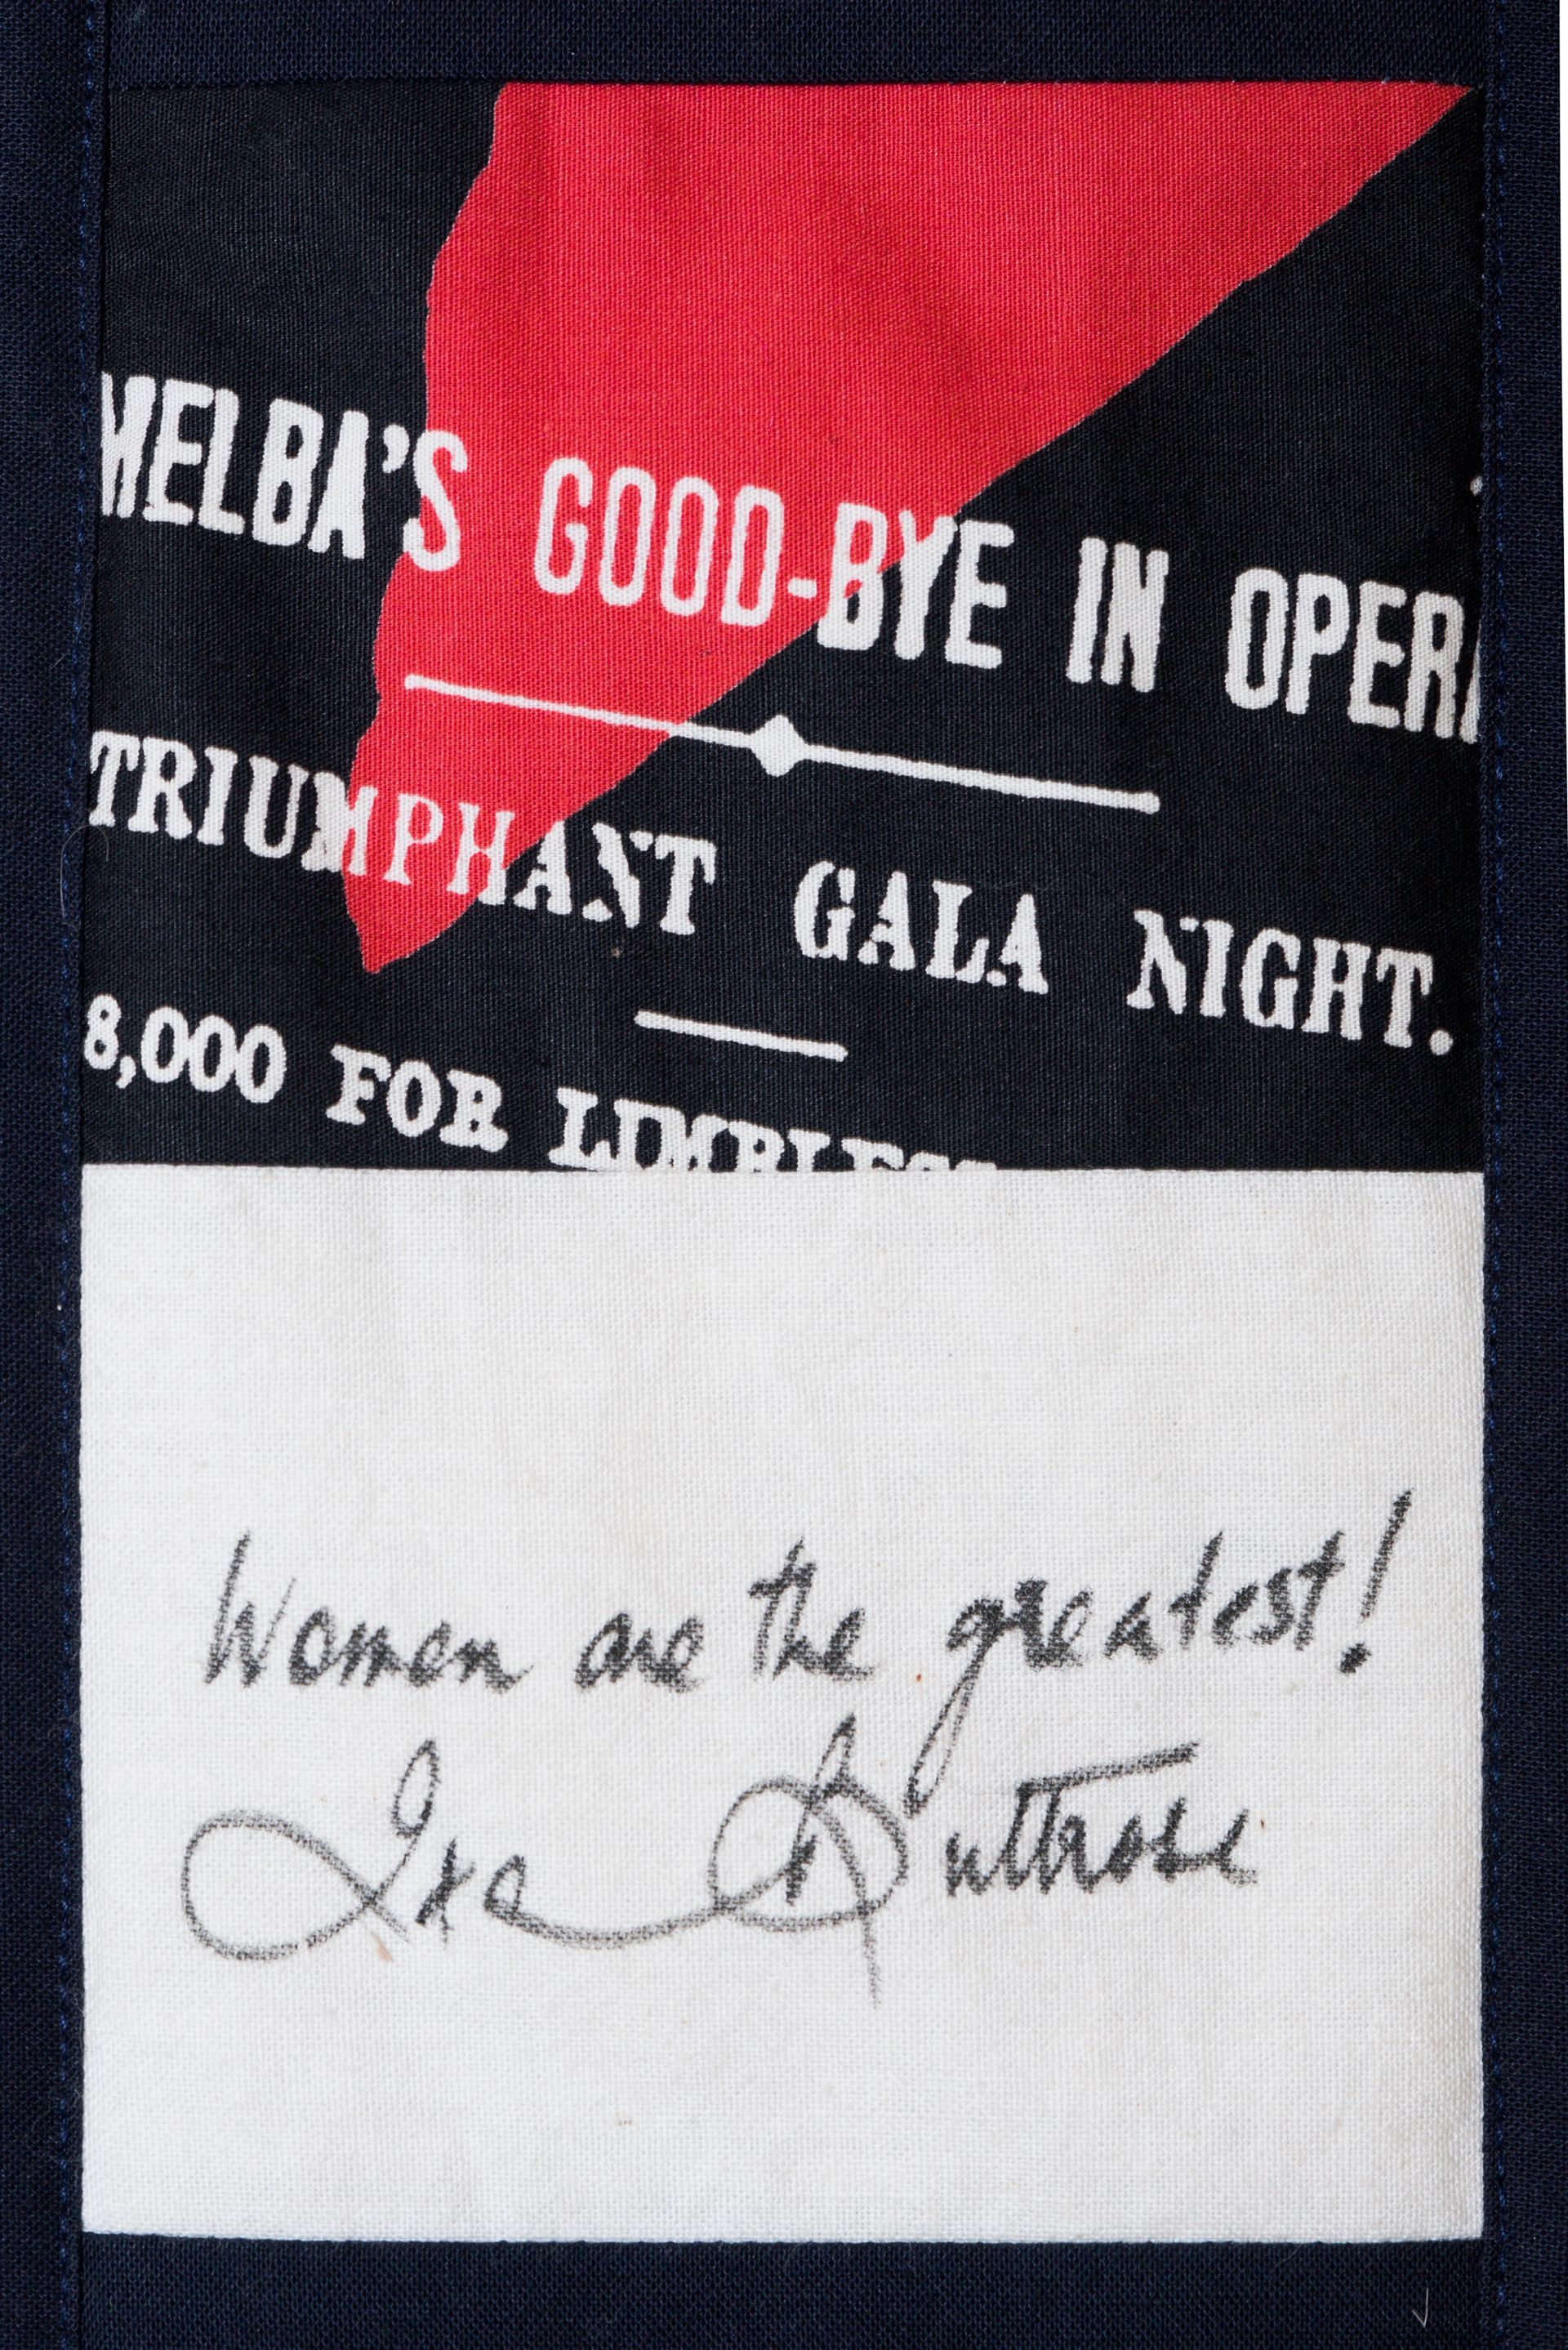 MELBA'S GOOD-BYE IN OPERA
TRIUMPHANT GALA NIGHT.
8,000 FOR LIMBLESS
Women are the greatest!
Ita Buttrose